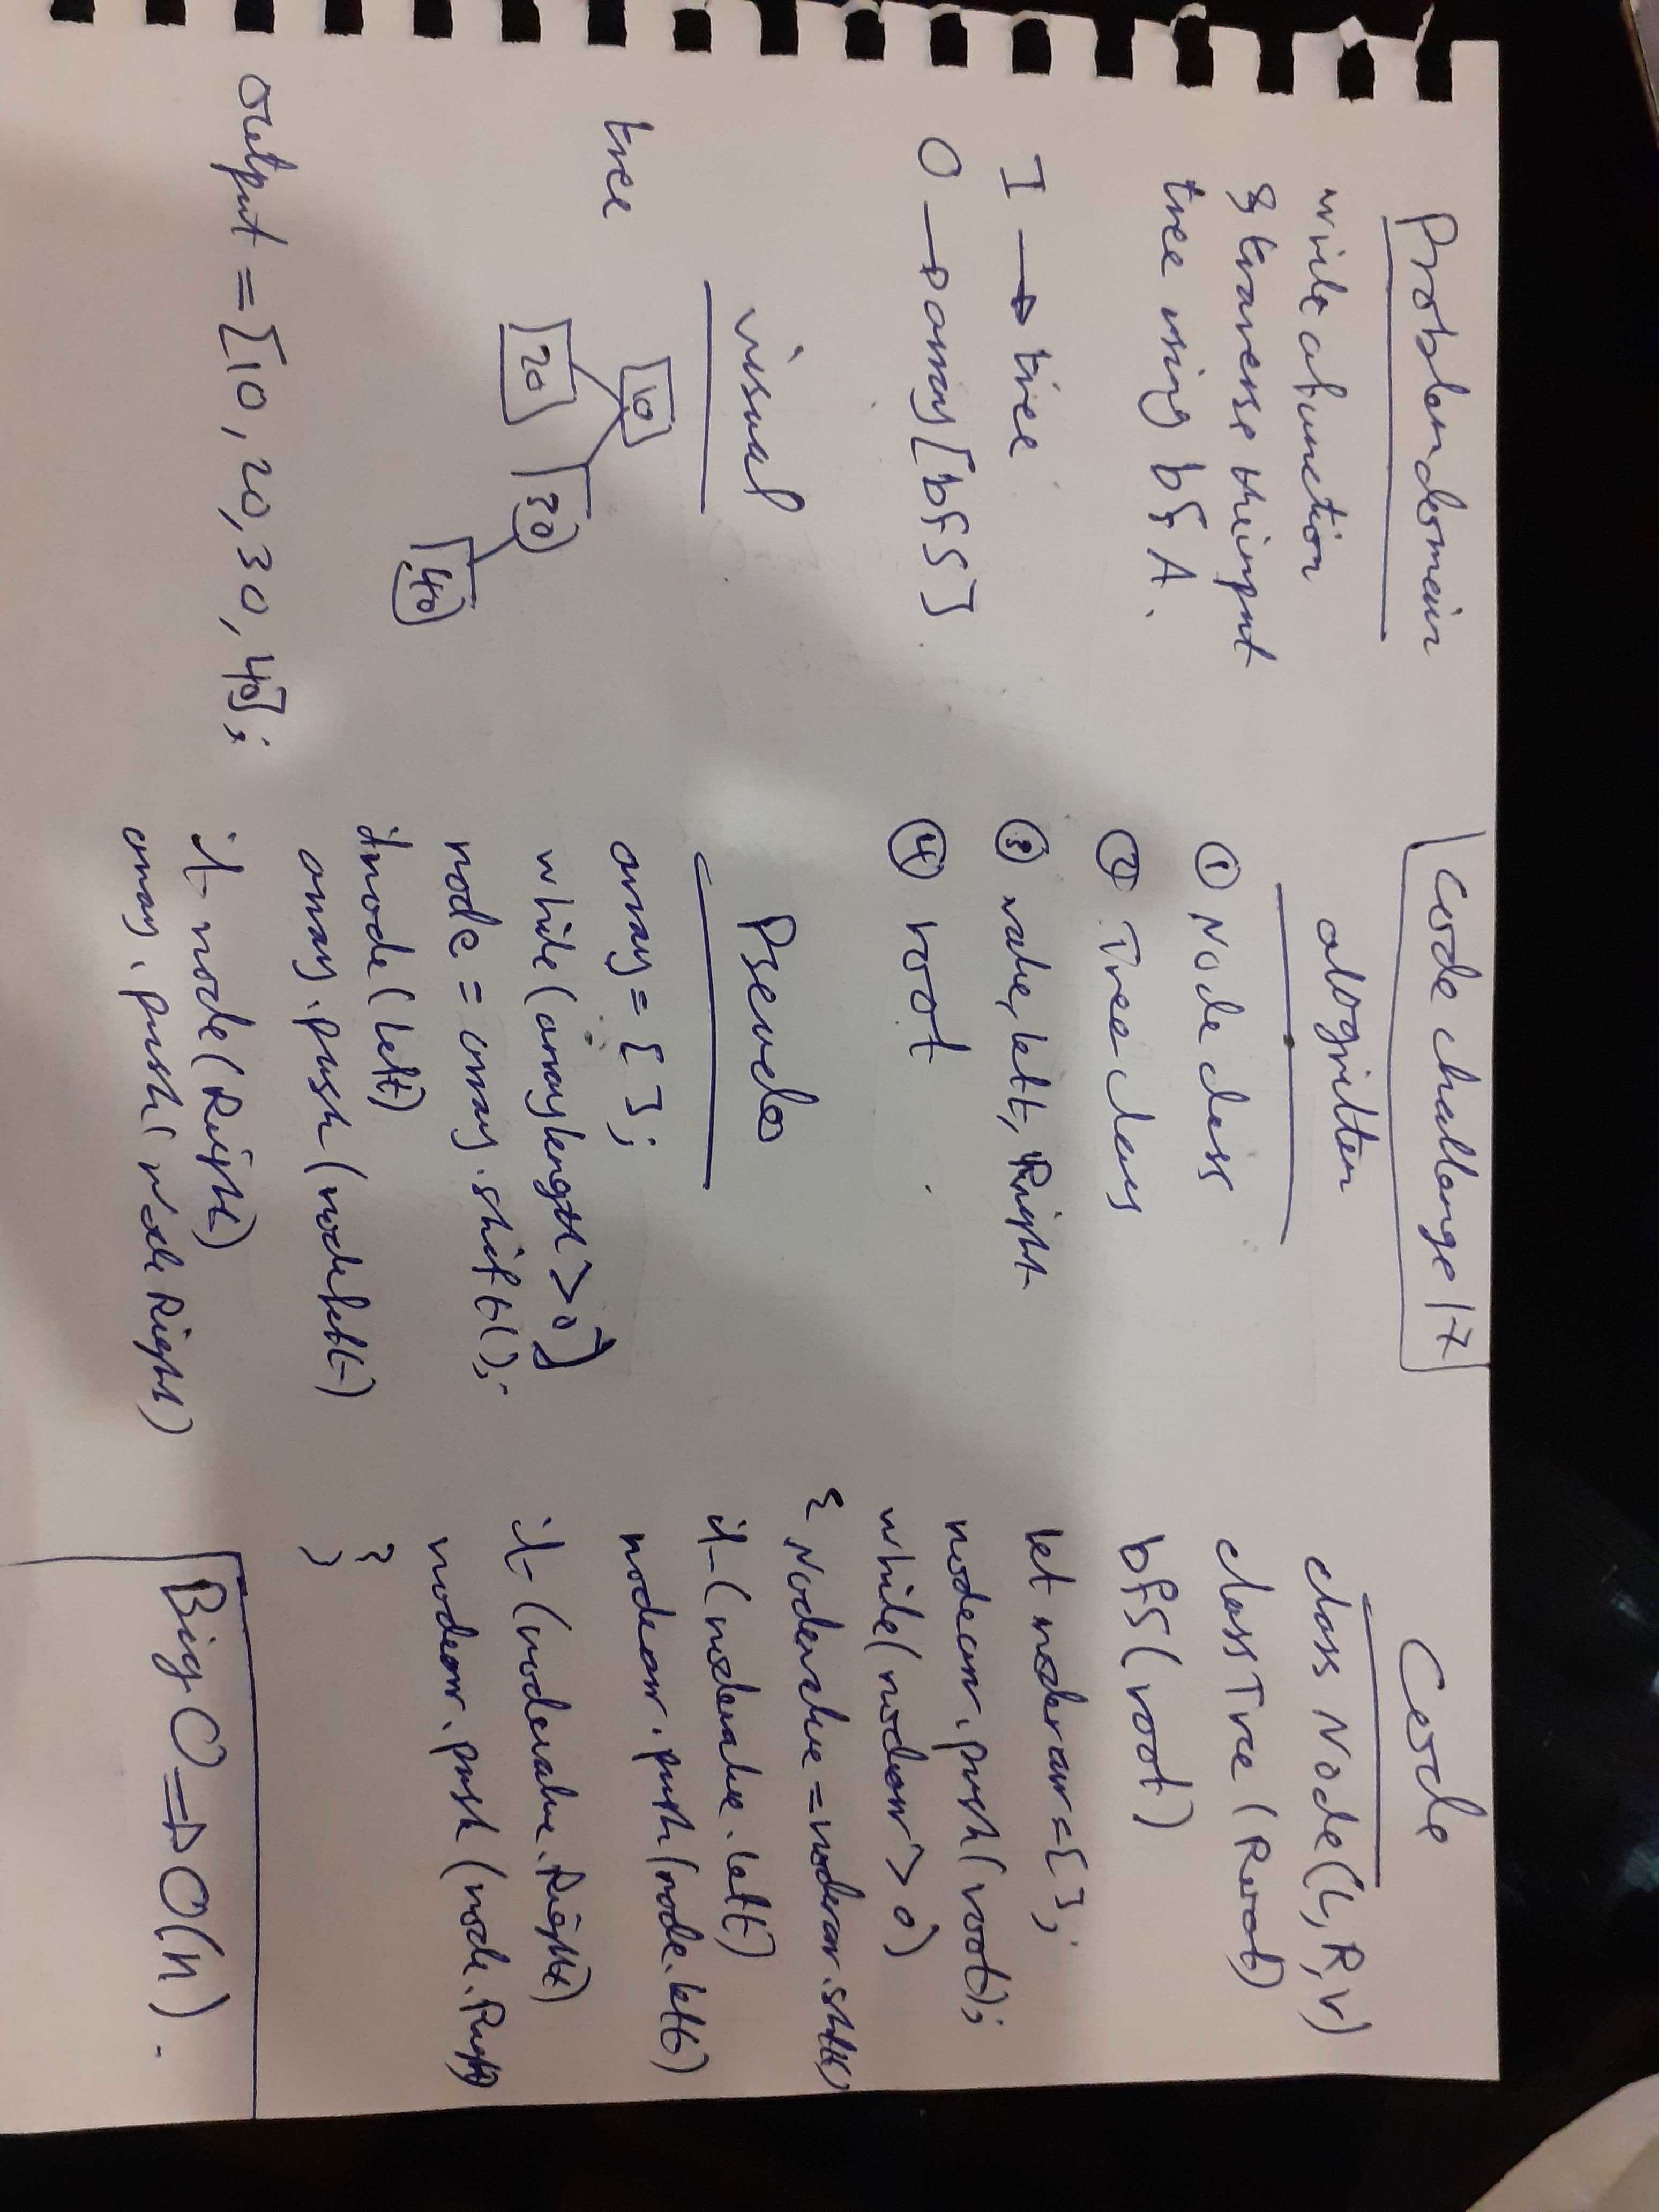 Code challange 17
Problem domain
write a function
& traverse the input
tree using bf A.
I → tree
O → array [bfs]
visual
tree
10
20
30
40
output = [10, 20, 30, 40];
algoritem
① Node class
② Tree class
③ value, left, Right
④ root
Pseudo
array = [ ];
while (array length > 0)
node = array.shift();
if node (left)
array.push (node left)
if node (Right)
array.push (node Right)
Code
class Node (L, R, v)
class Tree (Root)
bfs (root)
let nodearr = [ ];
nodearr.push (root);
while (nodearr > 0)
{ Nodevalue = nodearr.shift()
if (nodevalue.left)
nodearr.push (node.left)
if (nodevalue.Right)
nodearr.push (node.Right)
}
}
Big O ⇒ O(n).